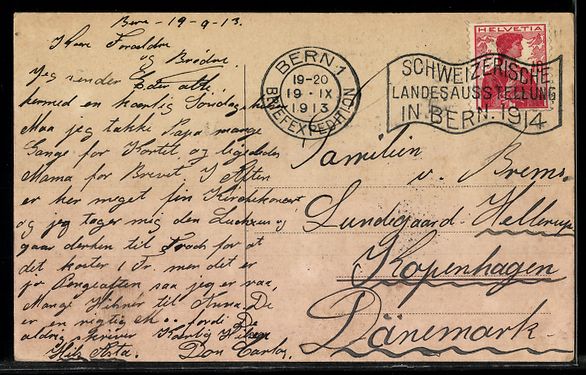 Bern - 19 - 9 - 13.
Kære Forældre
og Brødre
Jeg sender Eder alle
hermed en kærlig Søndags
Maa jeg takke Papa mange
Gange for Kortet og ligeledes
Mama for Brevet. I Aften
er her meget fin Kirkekoncert
og jeg tager mig den Luxus
gaar derhen til Trods for at
det koster 1 Fr. men det er
for Pengeaften saa jeg er
Mange Hilsner til Anna. De
er en rigtig fordi De
aldrig skriver Kærlig Hilsen
Hils Asta. Don Carlos.
BERN.1
19-20
19 · IX
1913
BRIEFEXPEDITION
HELVETIA
SCHWEIZERISCHE
LANDESAUSSTELLUNG
IN BERN. 1914
Familien
v. Brems.
Lundegaard - Hellerup
Kopenhagen
Dänemark -